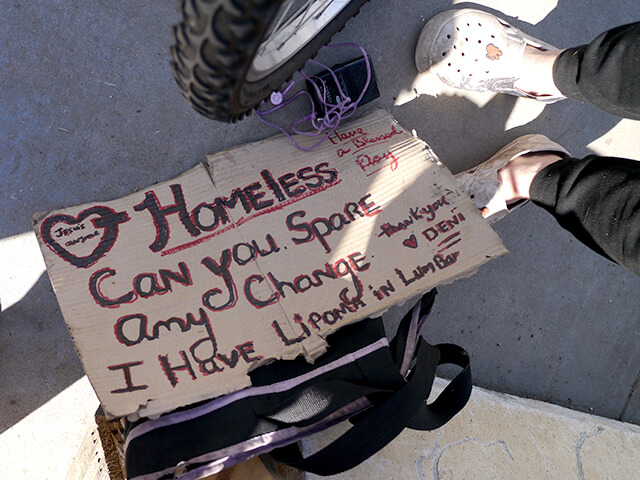 Have
a Blessed
Day
JESUS
HOMELESS
CAN YOU SPARE
ANY CHANGE
thank you
DENI
I HAVE LipomA in LumBar